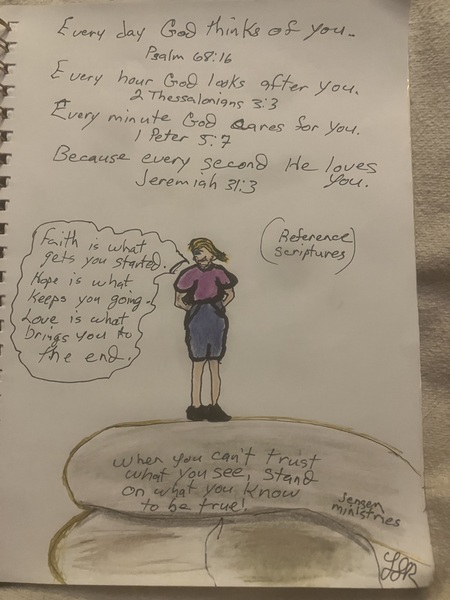 Every day God thinks of you.
Psalm 68:16
Every hour God looks after you.
2 Thessalonians 3:3
Every minute God cares for you.
1 Peter 5:7
Because every second He loves
you.
Jeremiah 31:3
(Reference
Scriptures)
Faith is what
gets you started.
Hope is what
keeps you going.
Love is what
brings you to
the end.
When you can't trust
what you see, stand
on what you know
to be true!
Jensen
ministries